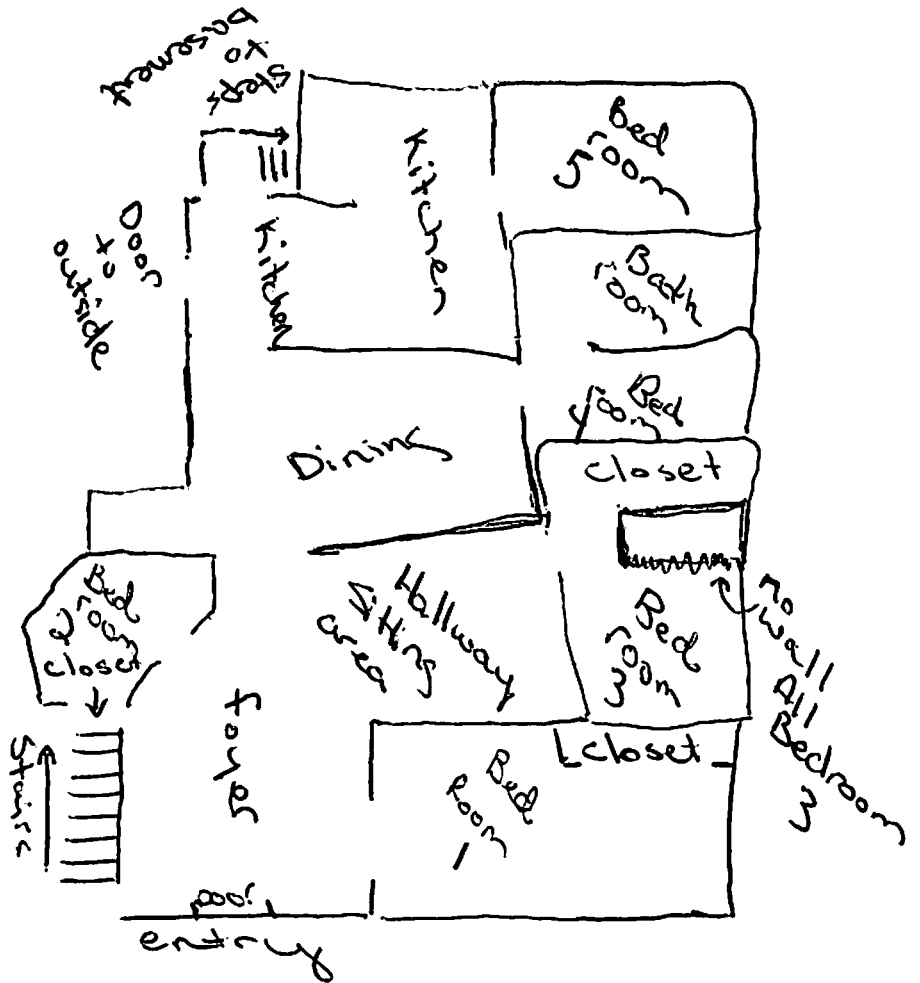 steps
to
basement
Kitchen
Bed
room
5
Door
to
outside
Kitchen
Bath
room
Bed
room
4
Dining
closet
Bed
room
2
closet
Hallway
sitting
area
Bed
room
3
no
wall
All
Bedroom
3
foyer
closet
Stairs
Bed
Room
1
Door
entry